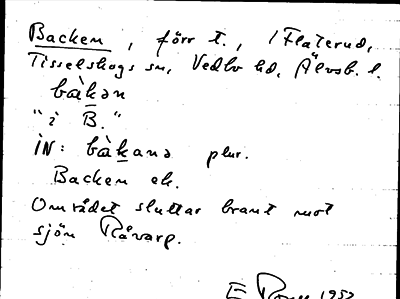 Backen, förr t., i Flaterud,
Tisselskogs sn, Vedbo hd, Älvsb. l.
bàkən
"i B."
iN: bàkanə plur.
Backen ek.
Området sluttar brant mot
sjön Råvarp.
E 1952